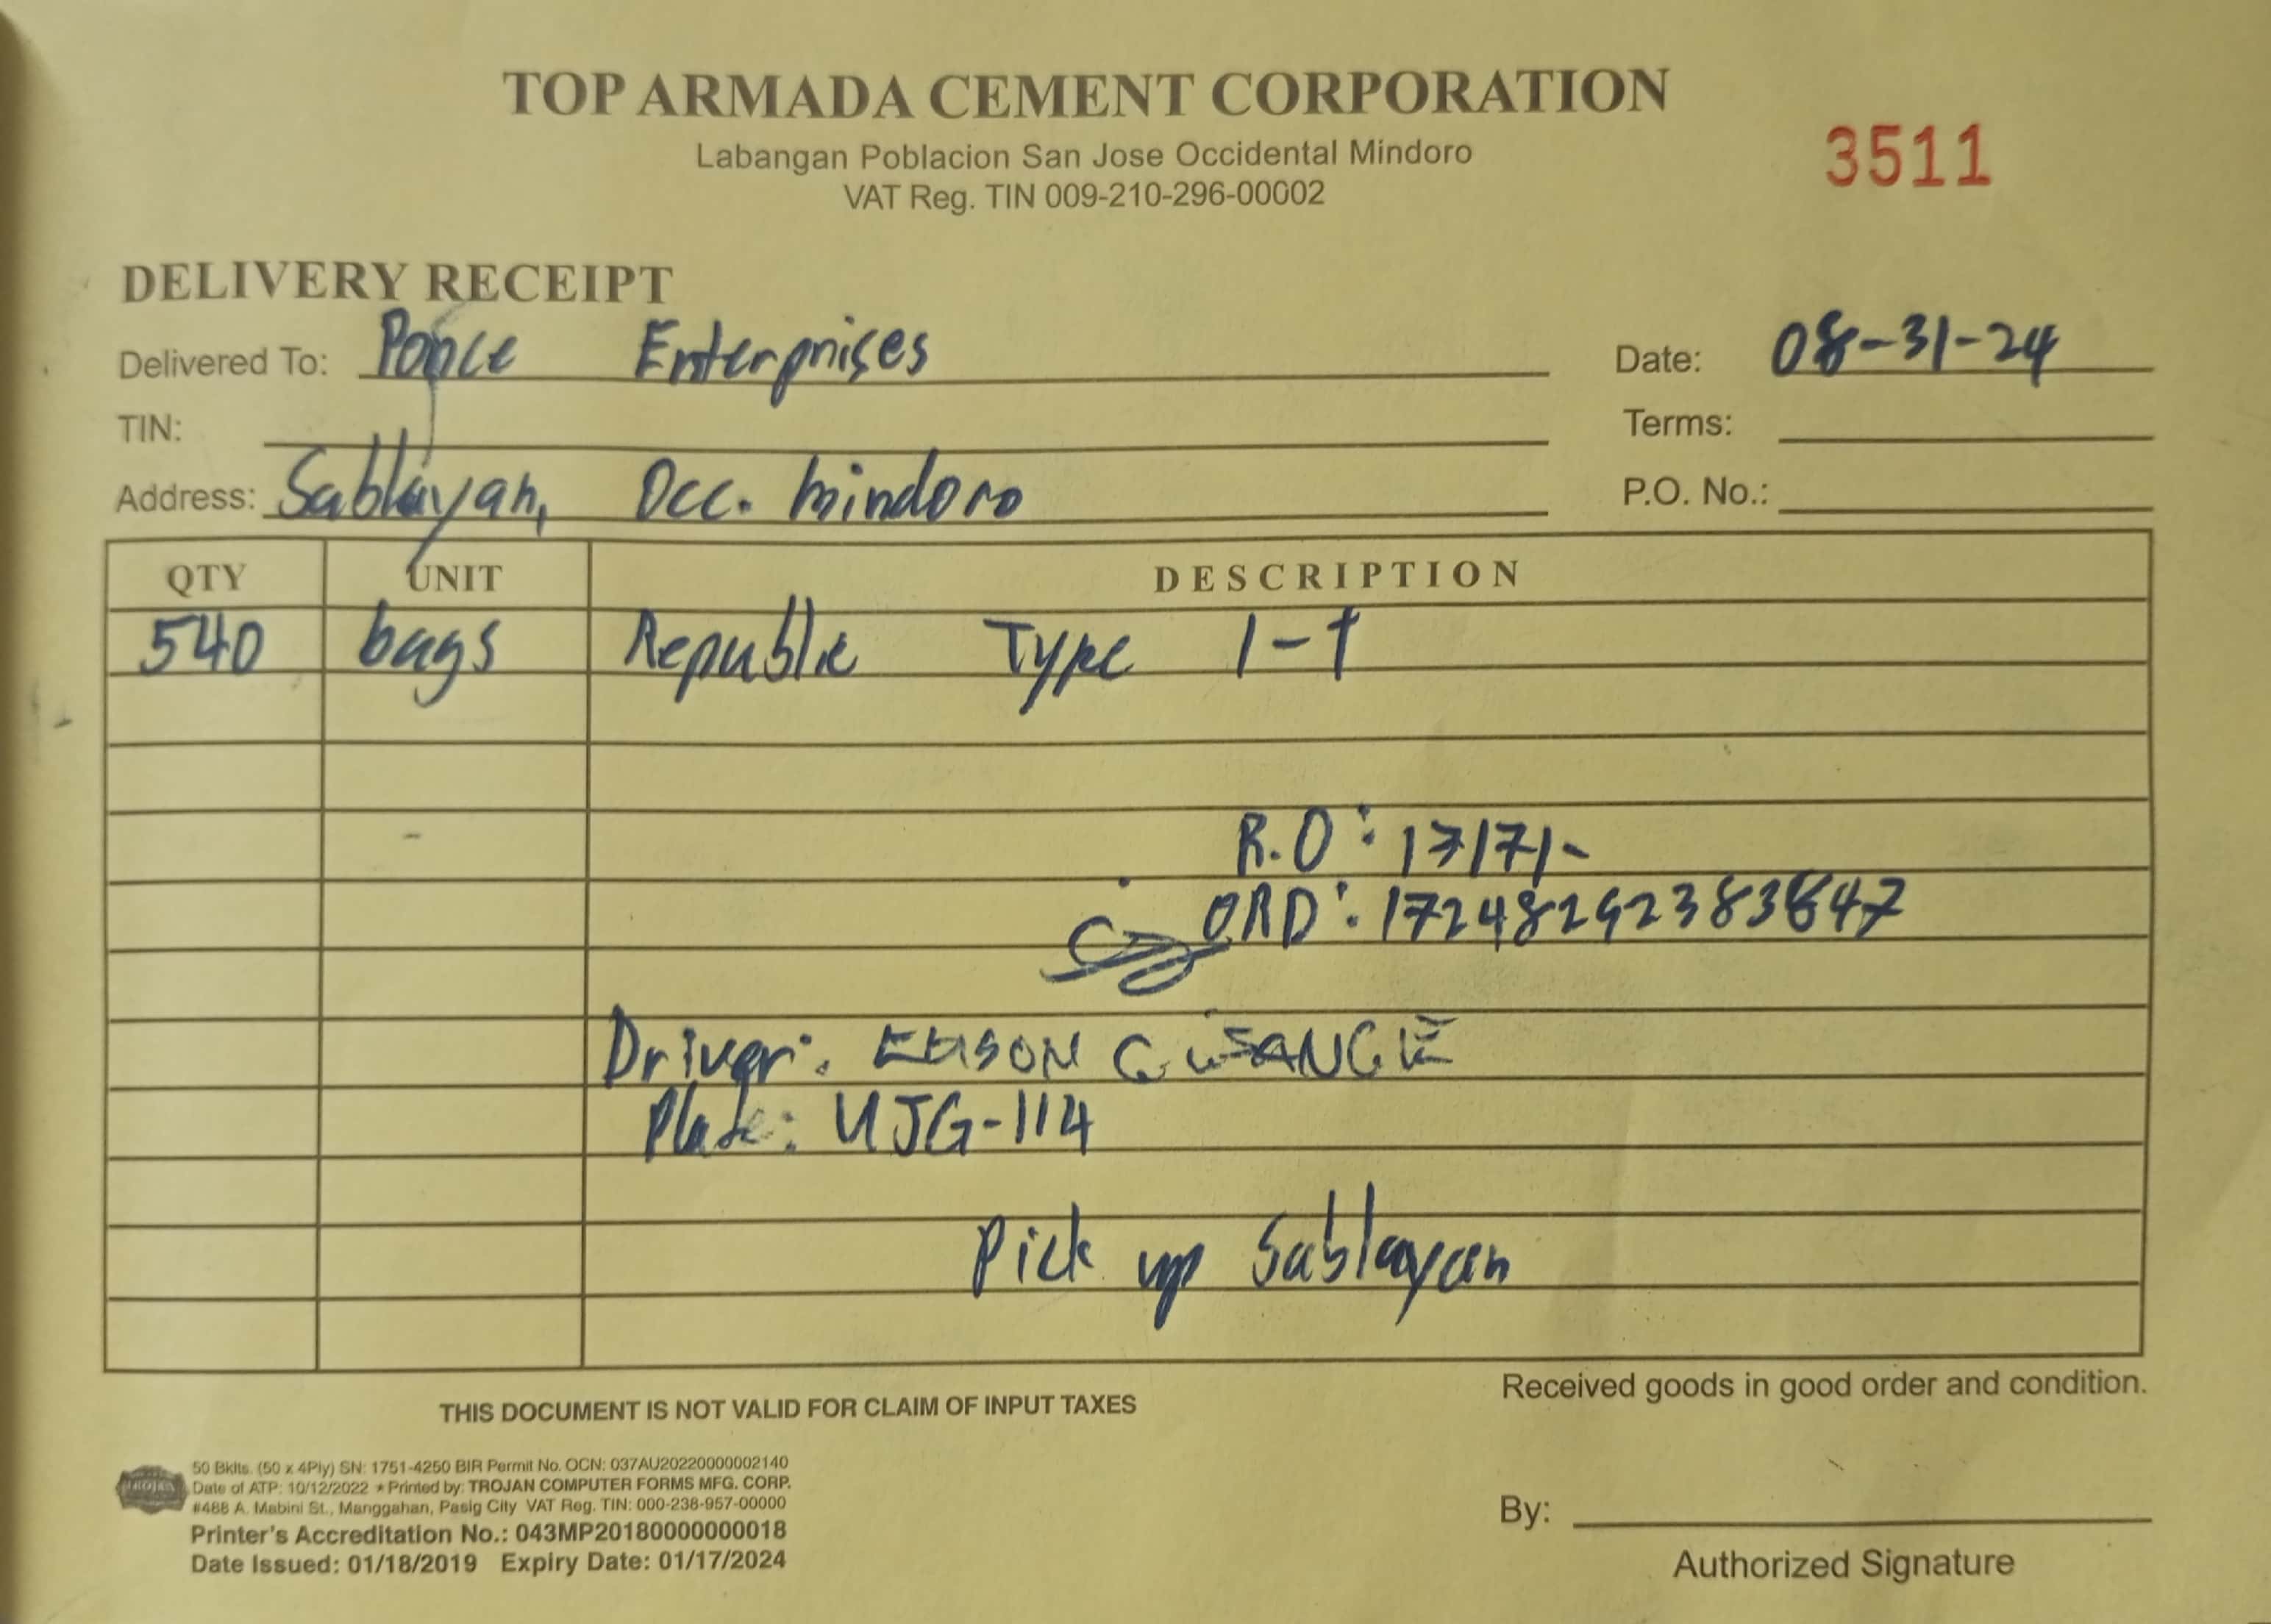 TOP ARMADA CEMENT CORPORATION
Labangan Poblacion San Jose Occidental Mindoro
VAT Reg. TIN 009-210-296-00002
3511
DELIVERY RECEIPT
Delivered To: Ponce Enterprises
Date: 08-31-24
TIN:
Terms:
Address: Sablayan, Occ. Mindoro
P.O. No.:
QTY UNIT DESCRIPTION
540 bags Republic Type 1-T
R.O: 17171-
ORD: 17248292383847
Driver: EDISON
Plate: UJG-114
Pick up Sablayan
THIS DOCUMENT IS NOT VALID FOR CLAIM OF INPUT TAXES
Received goods in good order and condition.
TROJAN
50 Bklts. (50 x 4Ply) SN: 1751-4250 BIR Permit No. OCN: 037AU20220000002140
Date of ATP: 10/12/2022 ★ Printed by: TROJAN COMPUTER FORMS MFG. CORP.
#488 A. Mabini St., Manggahan, Pasig City VAT Reg. TIN: 000-238-957-00000
Printer's Accreditation No.: 043MP20180000000018
Date Issued: 01/18/2019 Expiry Date: 01/17/2024
By:
Authorized Signature